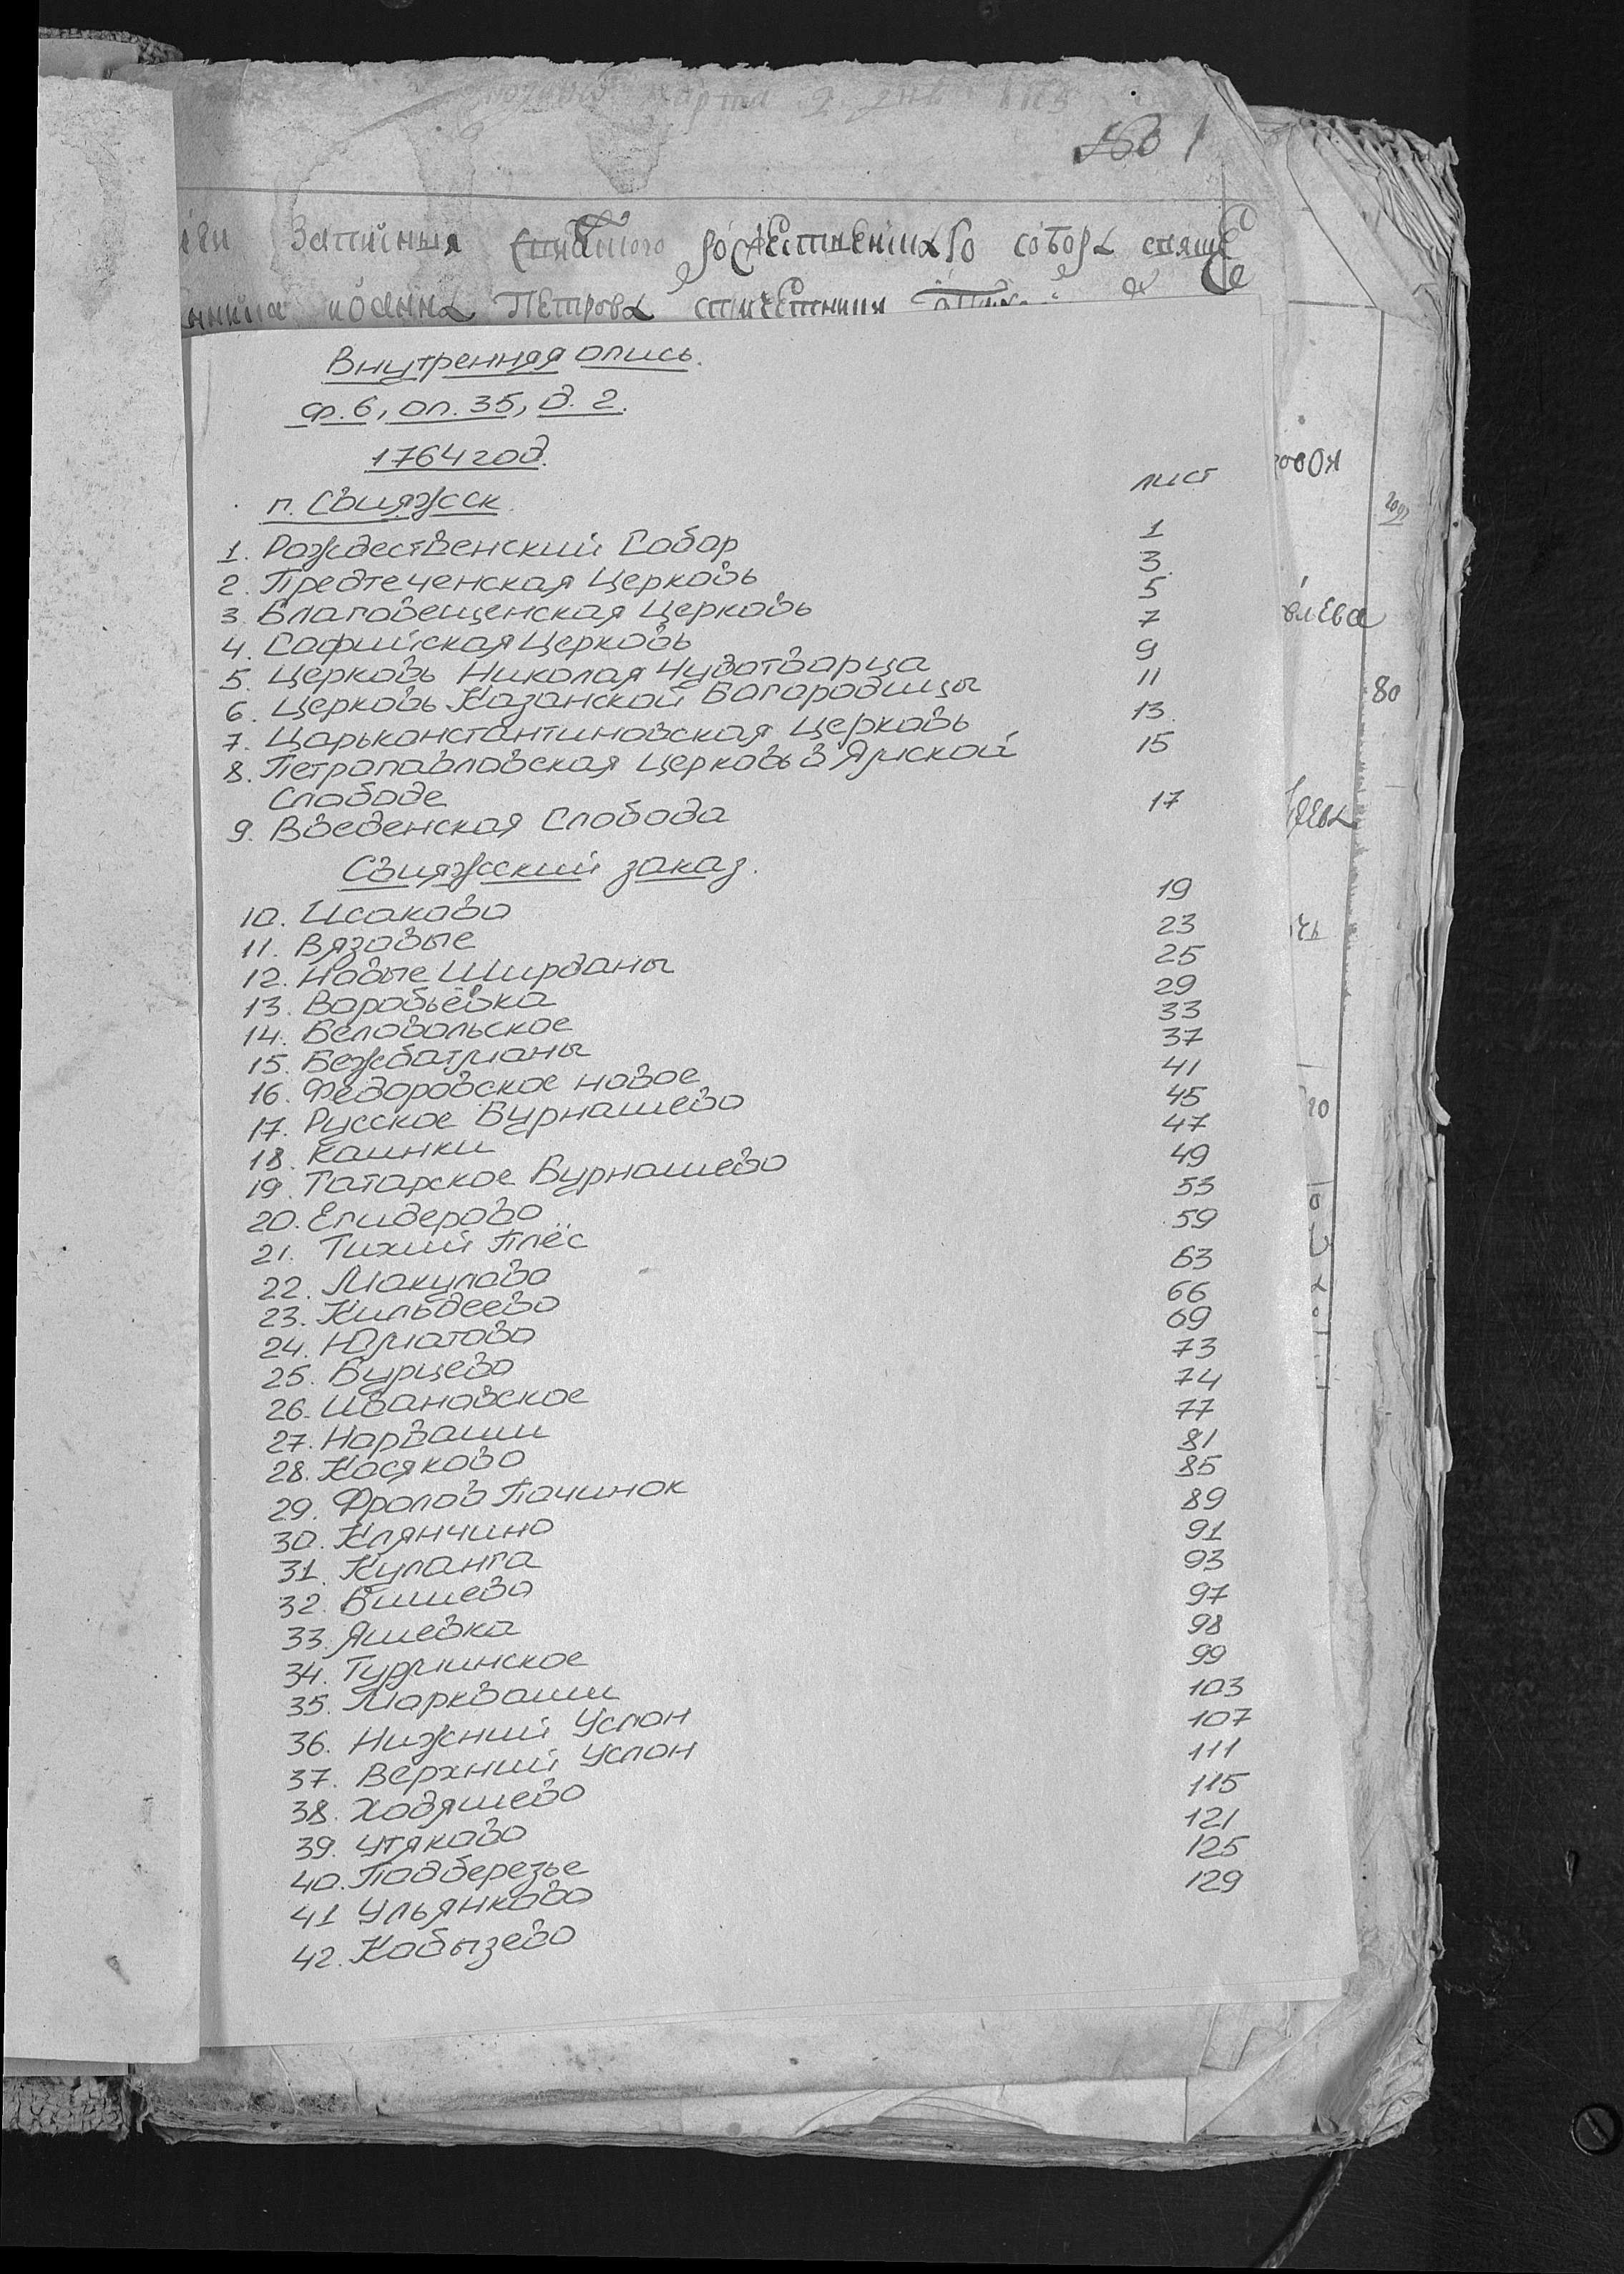 Записныя Святого рожественскаго собора свяще
иоанна Петрова
Внутренняя опись.
ф. 6, оп. 35, д. 2.
1764 год.
п. Свияжск. лист
1. Рождественский Собор 1
2. Предтеченская Церковь 3
3. Благовещенская Церковь 5
4. Софийская Церковь 7
5. Церковь Николая Чудотворца 9
6. Церковь Казанской Богородицы 11
7. Царьконстантиновская Церковь 13
8. Петропавловская Церковь в Ямской 15
Слободе
9. Введенская Слобода 17
Свияжский заказ.
10. Исаково 19
11. Вязовые 23
12. Новые Ширданы 25
13. Воробьёвка 29
14. Беловольское 33
15. Бежбатманы 37
16. Федоровское новое 41
17. Русское Бурнашево 45
18. Каинки 47
19. Татарское Бурнашево 49
20. Егидерово 53
21. Тихий Плёс 59
22. Макулово 63
23. Кильдеево 66
24. Юматово 69
25. Бурцево 73
26. Ивановское 74
27. Норваши 77
28. Косяково 81
29. Фролов Починок 85
30. Клянчино 89
31. Куланга 91
32. Бишево 93
33. Яшевка 97
34. Турминское 98
35. Моркваши 99
36. Нижний Услон 103
37. Верхний Услон 107
38. Ходяшево 111
39. Утяково 115
40. Подберезье 121
41 Ульянково 125
42. Кобызево 129
80